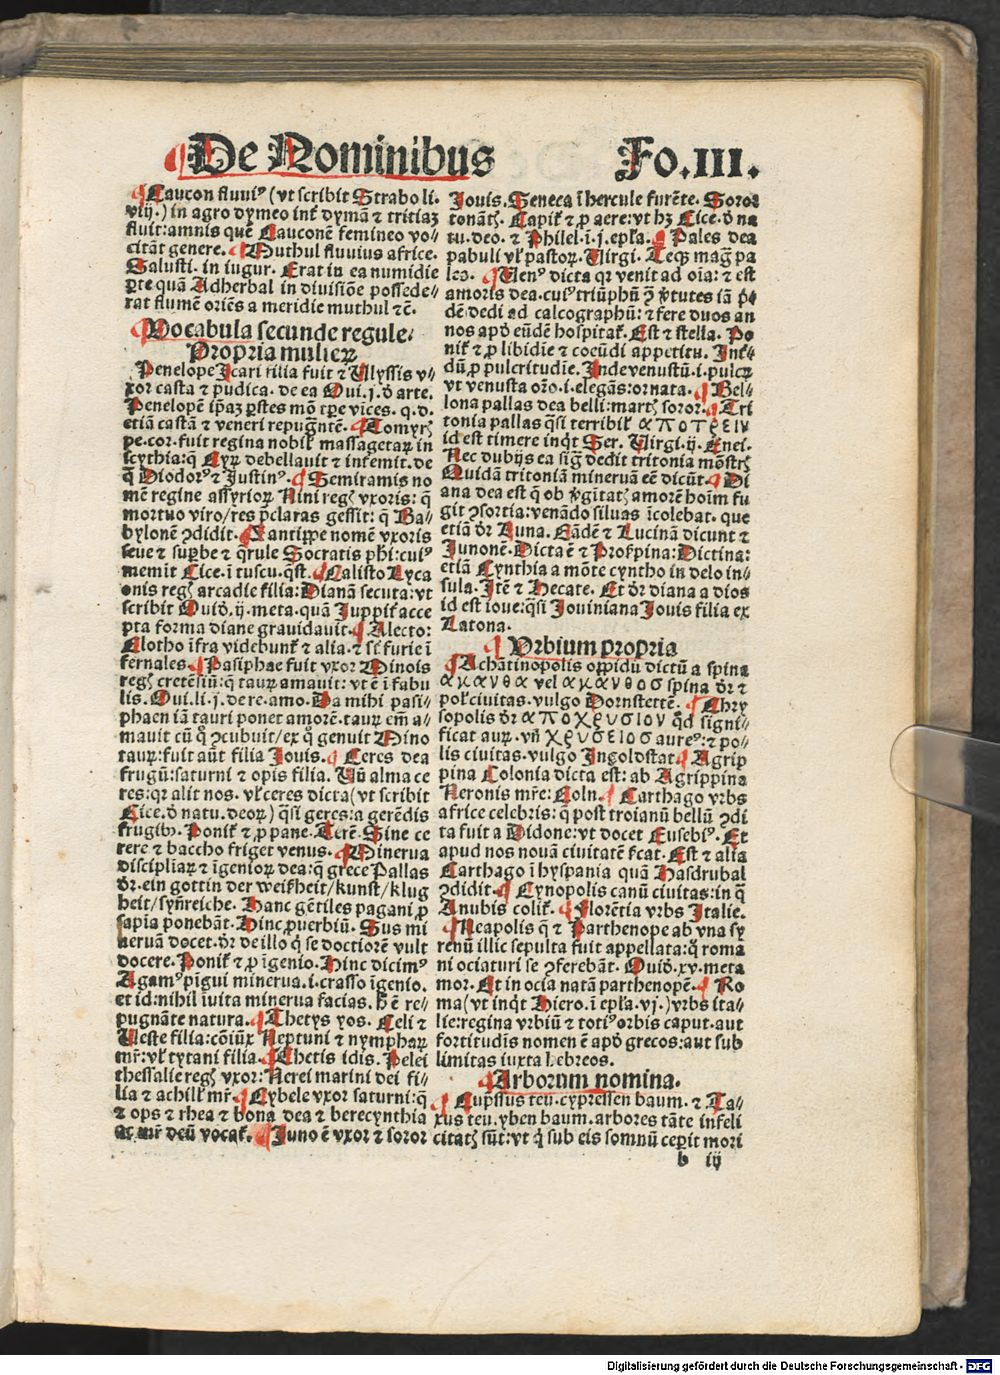 De Nominibus
Fo.III.
¶ Caucon fluuiꝰ (vt scribit Strabo li.
viij.) in agro dymeo int̄ dymā ⁊ tritiaʒ
fluit: amnis que Cauconē femineo vo⸗
citāt genere. ¶ Muthul fluuius africe.
Salusti. in iugur. Erat in ea numidie
ꝑte quā Adherbal in diuisiōe possede⸗
rat flumē oriēs a meridie muthul ⁊ē.
¶ Vocabula secunde regule.
Propria mulieꝝ
Penelope Icari filia fuit ⁊ Ulyssis v⸗
xor casta ⁊ pudica. de ea Oui. j. ď arte.
Penelopē ip̄aʒ ꝑstes mō tꝑe vices. q. d.
etiā castā ⁊ veneri repugn̄tē. ¶ Tomyrꝭ
pe. cor. fuit regina nobil̛ massagetaꝝ in
scythia: q̄ Cyꝝ debellauit ⁊ intemit. de
q̄ Diodorꝰ ⁊ Justinꝰ. ¶ Semiramis no
mē regine assyrioꝝ Nini regꝭ vxoris: q̄
mortuo viro/ res p̄claras gessit: q̄ Ba⸗
bylonē ꝯdidit. ¶ Xantippe nomē vxoris
seue ⁊ suꝑbe ⁊ q̄rule Socratis ph̄i: cuiꝰ
memit Cice. ī tuscu. q̄st. ¶ Calisto Lyca
onis regꝭ arcadie filia: Dianā secuta: vt
scribit Ouid̛. ij. meta. quā Juppit̛ acce
pta forma diane grauidauit. ¶ Alecto:
Clotho īfra videbunt̛ ⁊ alia. ⁊ st̄ furie ī
fernales. ¶ Pasiphae fuit vxor Minois
regꝭ cretēsiū: q̄ tauꝝ amauit: vt ē ī fabu
lis. Oui. li. j. de re. amo. Da mihi pasi⸗
phaen iā tauri ponet amorē. tauꝝ em̄ a⸗
mauit cū q̊ ꝯcubuit/ ex q̊ genuit Mino
tauꝝ: fuit aūt filia Jouis. ¶ Ceres dea
frugū: saturni ⁊ opis filia. Uñ alma ce
res: qꝛ alit nos. vl̛ ceres dicta (vt scribit
Cice. ď natu. deoꝝ) q̄si geres: a gerēdis
frugibꝰ. Ponit̛ ⁊ ꝓ pane. Terē. Sine ce
rere ⁊ baccho friget venus. ¶ Minerua
discipliaꝝ ⁊ īgenioꝝ dea: q̄ grece Pallas
dr̄. ein gottin der weißheit/ kunst/ klug
heit/ syn̄reiche. Hanc gētiles pagani ꝓ
sapīa ponebāt. Hinc ꝓuerbiū. Sus mi
neruā docet. dr̄ de illo q̊ se doctiorē vult
docere. Ponit̛ ⁊ ꝓ īgenio. Hinc dicimꝰ
Agamꝰ pīgui minerua. i. crasso īgenio.
et id: nihil īuita minerua facias. h̄ ē re⸗
pugnāte natura. ¶ Thetys yos. Celi ⁊
Veste filia: cōiūx Neptuni ⁊ nymphaꝝ
mr̄: vl̛ tytani filia. ¶ Thetis idis. Pelei
thessalie regꝭ vxor: Nerei marini dei fi⸗
lia ⁊ achill̛ mr̄. ¶ Cybele vxor saturni: q̄
⁊ ops ⁊ rhea ⁊ bona dea ⁊ berecynthia
ac mr̄ deū vocat̛. ¶ Juno ē vxor ⁊ soror
Jouis. Seneca ī hercule furēte. Soror
tonātꝭ. Capit̛ ⁊ ꝓ aere: vt hʒ Cice. ď na
tu. deo. ⁊ Philel. ī. j. epl̄a. ¶ Pales dea
pabuli vl̛ pastoꝝ. Virgi. Teqꝫ maḡ pa
lea. ¶ Venꝰ dicta qꝛ venit ad oīa: ⁊ est
amoris dea. cuiꝰ triūphū p̄ ꝑtutes iā p̄⸗
dē dedi ad calcographū: ⁊ fere duos an
nos apď eūdē hospitat̛. Est ⁊ stella. Po
nit̛ ⁊ ꝓ libidīe ⁊ coeūdi appetitu. Int̛⸗
dū ꝓ pulcritudīe. Inde venustū. i. pulcꝝ
vt venusta orō. i. elegās: ornata. ¶ Bel⸗
lona pallas dea belli: martꝭ soror. ¶ Tri
tonia pallas q̄si terribil̛ αποτρειν
id est timere inq̄t Ser. Virgi. ij. Enei.
Nec dubijs ea siḡ dedit tritonia mōstrꝭ
Quidā tritoniā mineruā eē dicūt. ¶ Di
ana dea est q̄ ob v̛gītatꝭ amorē hoīm fu
git ꝯsortia: venādo siluas īcolebat. que
etiā dr̄ Luna. Eādē ⁊ Lucinā dicunt ⁊
Junonē. Dicta ē ⁊ Proserpina: Dictina:
etiā Cynthia a mōte cyntho in delo in⸗
sula. Itē ⁊ Hecate. Et dr̄ diana a dios
id est ioue: q̄si Jouiniana Jouis filia ex
Latona.
¶ Vrbium propria
¶ Achātinopolis oppidū dictū a spina
ακανθα vel ακανθοσ spina dr̄ ⁊
pol̛ ciuitas. vulgo Dornstettē. ¶ Chry
sopolis dr̄ αποχρυσιον qď signi⸗
ficat auꝝ. vñ χρυσειοσ aureꝰ: ⁊ po⸗
lis ciuitas. vulgo Ingolstat ¶ Agrip
pina Colonia dicta est: ab Agrippina
Neronis mr̄e: Coln. ¶ Carthago vrbs
africe celebris: q̄ post troianū bellū ꝯdi
ta fuit a Didone: vt docet Eusebiꝰ. Et
apud nos nouā ciuitatē s̛cat. Est ⁊ alia
Carthago ī hyspania quā Hasdrubal
ꝯdidit. ¶ Cynopolis canū ciuitas: in q̄
Anubis colit̛. ¶ Florētia vrbs Italie.
¶ Neapolis q̄ ⁊ Parthenope ab vna sy
renū illic sepulta fuit appellata: q̊ roma
ni ociaturi se ꝯferebāt. Ouid̛. xv. meta
mor. Et in ocia natā parthenopē. ¶ Ro
ma (vt inq̄t Hiero. ī epl̄a. vj.) vrbs ita⸗
lie: regina vrbiū ⁊ totiꝰ orbis caput. aut
fortitudis nomen ē apď grecos: aut sub
limitas iuxta hebreos.
¶ Arborum nomina.
¶ Cupressus teu. cypressen baum. ⁊ Ta⸗
xus teu. yben baum. arbores tāte infeli
citatꝭ sūt: vt q̊ sub eis somnū ceꝑit mori
b iij
Digitalisierung gefördert durch die Deutsche Forschungsgemeinschaft - DFG